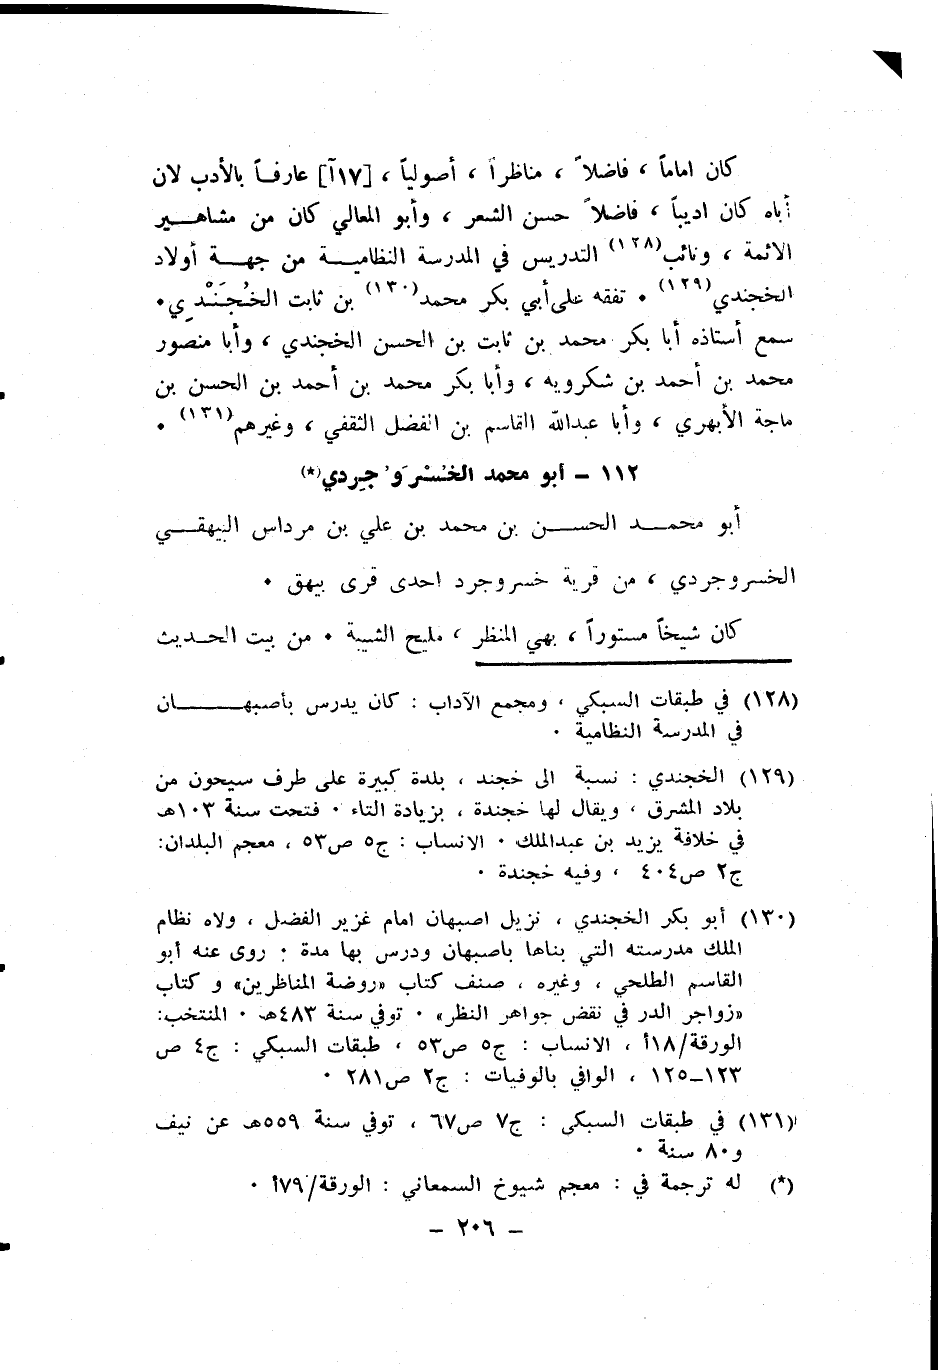 كان اماماً ، فاضلاً ، مناظراً ، أصولياً ، [١٧آ] عارفاً بالأدب لان
أباه كان اديباً ، فاضلاً حسن الشعر ، وأبو المعالي كان من مشاهير
الائمة ، ونائب(١٢٨) التدريس في المدرسة النظامية من جهة أولاد
الخجندي(١٢٩) ٠ تفقه على أبي بكر محمد(١٣٠) بن ثابت الخُجَنْدِي٠
سمع أستاذه أبا بكر محمد بن ثابت بن الحسن الخجندي ، وأبا منصور
محمد بن أحمد بن شكرويه ، وأبا بكر محمد بن أحمد بن الحسن بن
ماجة الأبهري ، وأبا عبدالله القاسم بن الفضل الثقفي ، وغيرهم(١٣١) ٠
١١٢ – أبو محمد الخُسْرَوْجِردي(*)
أبو محمد الحسن بن محمد بن علي بن مرداس البيهقي
الخسروجردي ، من قرية خسروجرد احدى قرى بيهق ٠
كان شيخاً مستوراً ، بهي المنظر ، مليح الشيبة ٠ من بيت الحديث
(١٢٨) في طبقات السبكي ، ومجمع الآداب : كان يدرس بأصبهان
في المدرسة النظامية ٠
(١٢٩) الخجندي : نسبة الى خجند ، بلدة كبيرة على طرف سيحون من
بلاد المشرق ، ويقال لها خجندة ، بزيادة التاء ٠ فتحت سنة ١٠٣هـ
في خلافة يزيد بن عبدالملك ٠ الانساب : ج٥ ص٥٣ ، معجم البلدان:
ج٢ ص٤٠٤ ، وفيه خجندة ٠
(١٣٠) أبو بكر الخجندي ، نزيل اصبهان امام غزير الفضل ، ولاه نظام
الملك مدرسته التي بناها باصبهان ودرس بها مدة ٠ روى عنه أبو
القاسم الطلحي ، وغيره ، صنف كتاب «روضة المناظرين» و كتاب
«زواجر الدر في نقض جواهر النظر» ٠ توفي سنة ٤٨٣هـ ٠ المنتخب:
الورقة/١٨أ ، الانساب : ج٥ ص٥٣ ، طبقات السبكي : ج٤ ص
١٢٣–١٢٥ ، الوافي بالوفيات : ج٢ ص٢٨١ ٠
(١٣١) في طبقات السبكى : ج٧ ص٦٧ ، توفي سنة ٥٥٩هـ عن نيف
و٨٠ سنة ٠
(*) له ترجمة في : معجم شيوخ السمعاني : الورقة/٧٩أ ٠
– ٢٠٦ –